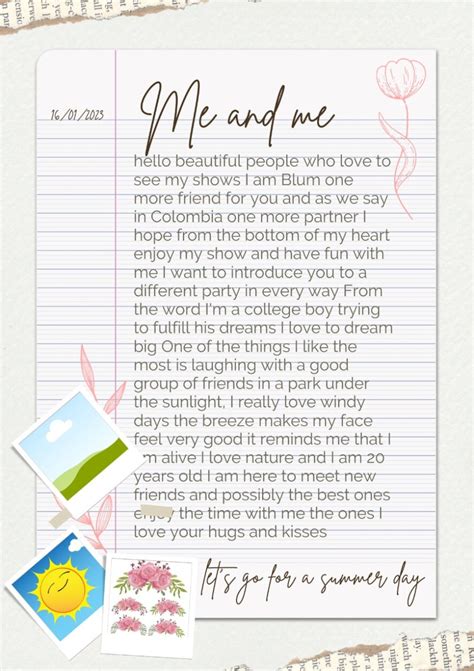 Me and me
16/01/2023
hello beautiful people who love to
see my shows I am Blum one
more friend for you and as we say
in Colombia one more partner I
hope from the bottom of my heart
enjoy my show and have fun with
me I want to introduce you to a
different party in every way From
the word I'm a college boy trying
to fulfill his dreams I love to dream
big One of the things I like the
most is laughing with a good
group of friends in a park under
the sunlight, I really love windy
days the breeze makes my face
feel very good it reminds me that I
m alive I love nature and I am 20
years old I am here to meet new
friends and possibly the best ones
enjoy the time with me the ones I
love your hugs and kisses
let's go for a summer day